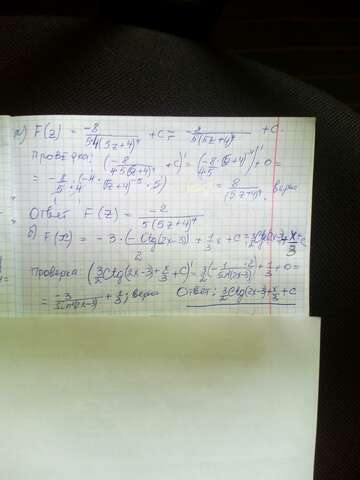 а) F(z) = -8 / 5·4(5z+4)⁴ + C = - 2 / 5(5z+4)⁴ + C.
Проверка: (- 8 / 4·5(5z+4)⁴ + C)' = (-8·(5z+4)⁻⁴ / 4·5)' + 0 =
= - 8/5·4 · (-4·(5z+4)⁻⁵ · 5) = 8 / (5z+4)⁵, верно
Ответ F(z) = -2 / 5(5z+4)⁴
б) F(x) = -3 · (-Ctg(2x-3)) / 2 + 1/3 x + C = 3/2 Ctg(2x-3) + x/3 + C
Проверка: (3/2 Ctg(2x-3) + x/3 + C)' = 3/2 (- 1·2 / sin²(2x-3)) + 1/3 + 0 =
= -3 / sin²(2x-3) + 1/3; верно Ответ: 3/2 Ctg(2x-3) + x/3 + C